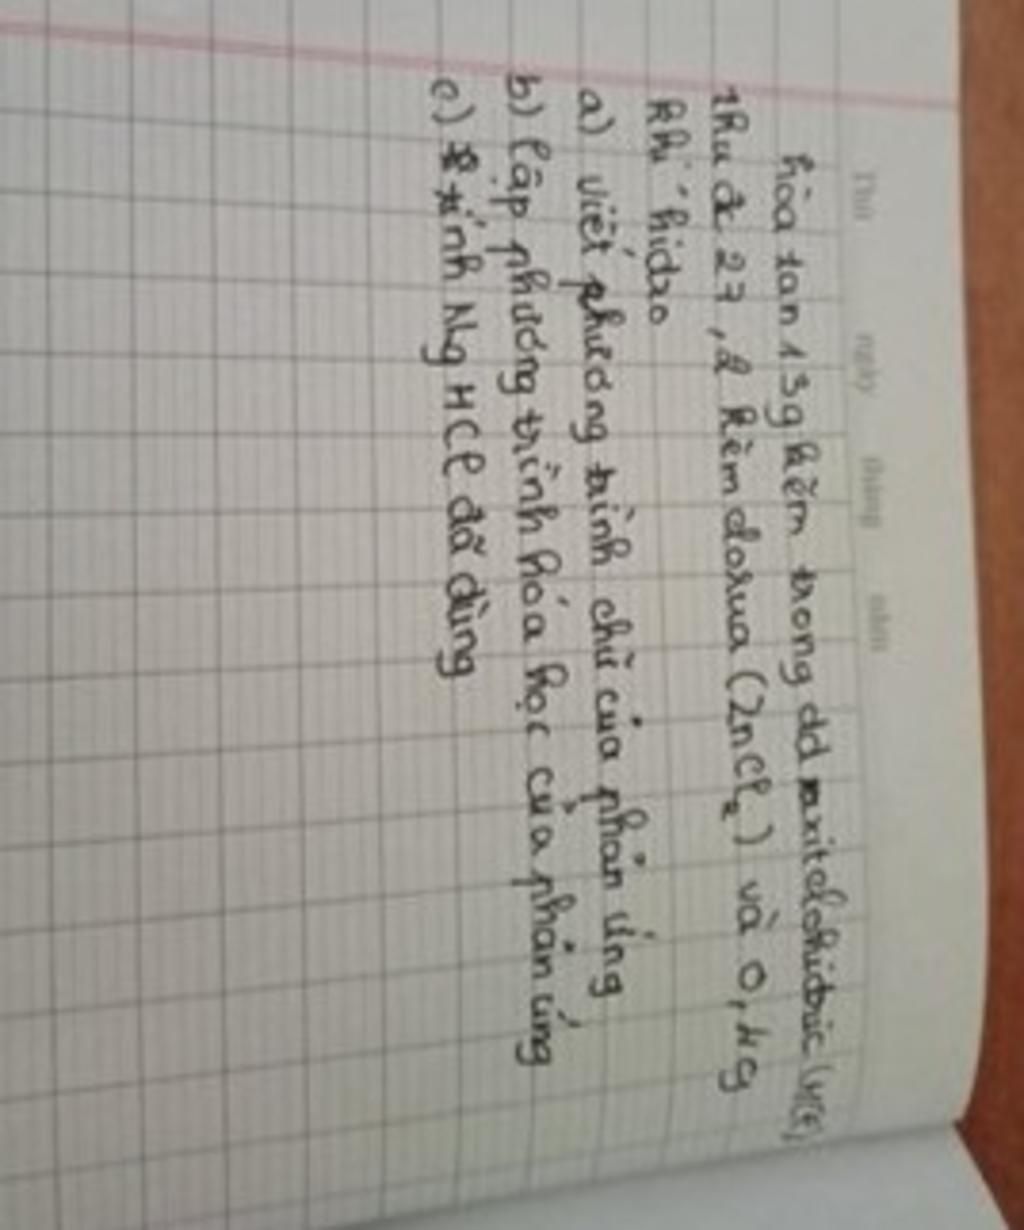 Thứ ngày tháng năm
hòa tan 13g kẽm trong dd axit clohidric (HCl)
thu đc 27,2 kẽm clorua (ZnCl₂) và 0,4g
khí hidro
a) viết phương trình chữ của phản ứng
b) lập phương trình hóa học của phản ứng
c) tính Mg HCl đã dùng